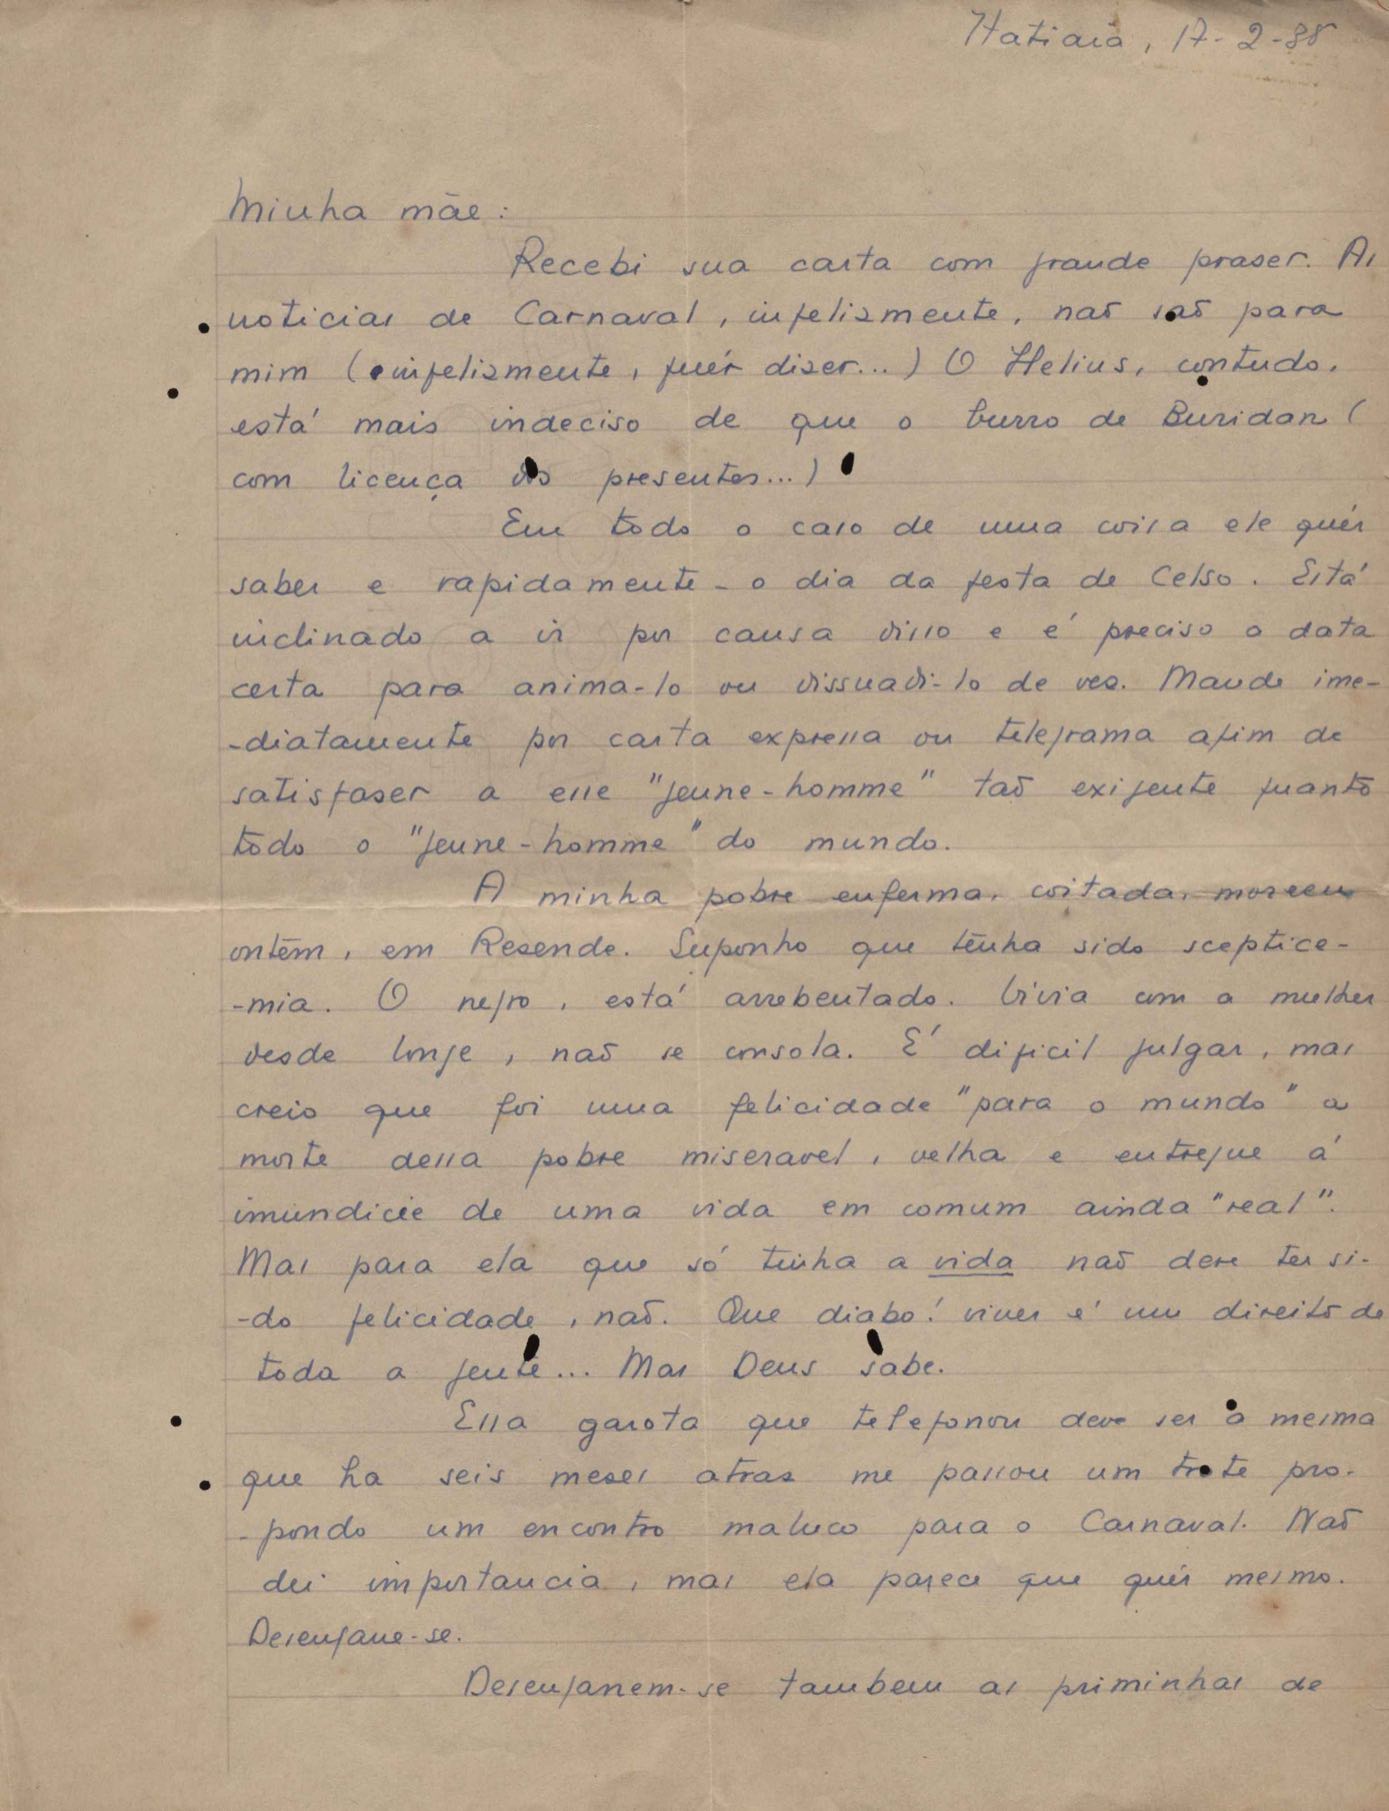 Itatiaia, 17-2-38
Minha mãe:
Recebi sua carta com grande praser. As
noticias de Carnaval, infelismente, naõ saõ para
mim (infelismente, quér diser...) O Helius, contudo,
está mais indeciso de que o burro de Buridan (
com licença dos presentes...)
Em todo o caso de uma coisa ele quér
saber e rapidamente - o dia da festa de Celso. Está
inclinado a ir por causa disso e é preciso a data
certa para anima-lo ou dissuadi-lo de ves. Mande ime-
-diatamente por carta expressa ou telegrama afim de
satisfaser a esse "jeune-homme" taõ exigente quanto
todo o "jeune-homme" do mundo.
A minha pobre enferma, coitada, morreu
ontêm, em Resende. Suponho que tênha sido sceptice-
-mia. O negro, está arrebentado. Vivia com a mulher
desde longe, naõ se consola. É dificil julgar, mas
creio que foi uma felicidade "para o mundo" a
morte dessa pobre miseravel, velha e entregue á
imundicie de uma vida em comum ainda "real".
Mas para ela que só tinha a vida naõ deve ter si-
-do felicidade, naõ. Que diabo! viver é um direito de
toda a gente... Mas Deus sabe.
Essa garota que telefonou deve ser a mesma
que ha seis meses atras me passou um trote pro-
-pondo um encontro maluco para o Carnaval. Naõ
dei importancia, mas ela parece que quér mesmo.
Desengane-se.
Desenganem-se tambem as priminhas de